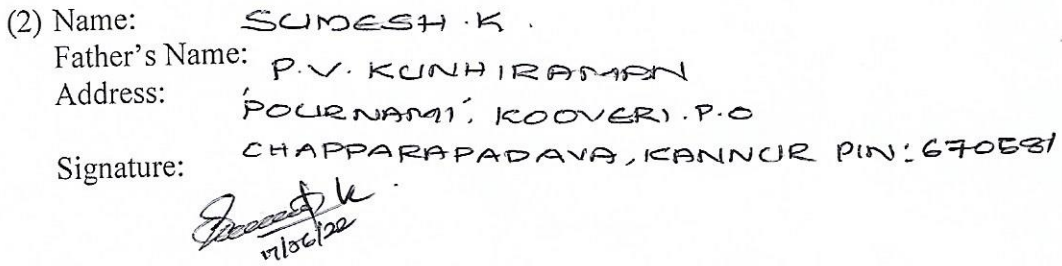 (2) Name: SUDESH .K .
Father's Name: P.V. KUNHIRAMAN
Address: 'POURNAMI', KOOVERI .P.O
CHAPPARAPADAVA, KANNUR PIN: 670581
Signature:
17/06/22